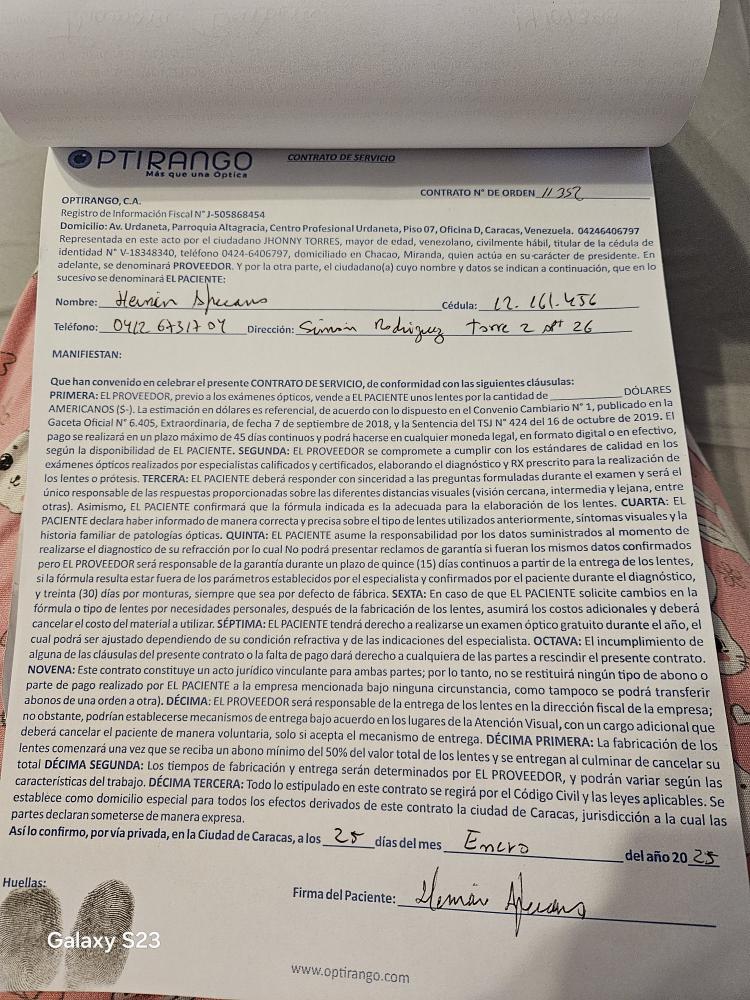 OPTIRANGO
Más que una Óptica
CONTRATO DE SERVICIO
CONTRATO N° DE ORDEN 11352
OPTIRANGO, C.A.
Registro de Información Fiscal N° J-505868454
Domicilio: Av. Urdaneta, Parroquia Altagracia, Centro Profesional Urdaneta, Piso 07, Oficina D, Caracas, Venezuela. 04246406797
Representada en este acto por el ciudadano JHONNY TORRES, mayor de edad, venezolano, civilmente hábil, titular de la cédula de
identidad N° V-18348340, teléfono 0424-6406797, domiciliado en Chacao, Miranda, quien actúa en su carácter de presidente. En
adelante, se denominará PROVEEDOR. Y por la otra parte, el ciudadano(a) cuyo nombre y datos se indican a continuación, que en lo
sucesivo se denominará EL PACIENTE:
Nombre: Hernán Cédula: 12.161.456
Teléfono: 0412 6731704 Dirección: Simón Rodríguez torre 2 apt 26
MANIFIESTAN:
Que han convenido en celebrar el presente CONTRATO DE SERVICIO, de conformidad con las siguientes cláusulas:
PRIMERA: EL PROVEEDOR, previo a los exámenes ópticos, vende a EL PACIENTE unos lentes por la cantidad de ____________ DÓLARES
AMERICANOS ($-). La estimación en dólares es referencial, de acuerdo con lo dispuesto en el Convenio Cambiario N° 1, publicado en la
Gaceta Oficial N° 6.405, Extraordinaria, de fecha 7 de septiembre de 2018, y la Sentencia del TSJ N° 424 del 16 de octubre de 2019. El
pago se realizará en un plazo máximo de 45 días continuos y podrá hacerse en cualquier moneda legal, en formato digital o en efectivo,
según la disponibilidad de EL PACIENTE. SEGUNDA: EL PROVEEDOR se compromete a cumplir con los estándares de calidad en los
exámenes ópticos realizados por especialistas calificados y certificados, elaborando el diagnóstico y RX prescrito para la realización de
los lentes o prótesis. TERCERA: EL PACIENTE deberá responder con sinceridad a las preguntas formuladas durante el examen y será el
único responsable de las respuestas proporcionadas sobre las diferentes distancias visuales (visión cercana, intermedia y lejana, entre
otras). Asimismo, EL PACIENTE confirmará que la fórmula indicada es la adecuada para la elaboración de los lentes. CUARTA: EL
PACIENTE declara haber informado de manera correcta y precisa sobre el tipo de lentes utilizados anteriormente, síntomas visuales y la
historia familiar de patologías ópticas. QUINTA: EL PACIENTE asume la responsabilidad por los datos suministrados al momento de
realizarse el diagnostico de su refracción por lo cual No podrá presentar reclamos de garantía si fueran los mismos datos confirmados
pero EL PROVEEDOR será responsable de la garantía durante un plazo de quince (15) días continuos a partir de la entrega de los lentes,
si la fórmula resulta estar fuera de los parámetros establecidos por el especialista y confirmados por el paciente durante el diagnóstico,
y treinta (30) días por monturas, siempre que sea por defecto de fábrica. SEXTA: En caso de que EL PACIENTE solicite cambios en la
fórmula o tipo de lentes por necesidades personales, después de la fabricación de los lentes, asumirá los costos adicionales y deberá
cancelar el costo del material a utilizar. SÉPTIMA: EL PACIENTE tendrá derecho a realizarse un examen óptico gratuito durante el año, el
cual podrá ser ajustado dependiendo de su condición refractiva y de las indicaciones del especialista. OCTAVA: El incumplimiento de
alguna de las cláusulas del presente contrato o la falta de pago dará derecho a cualquiera de las partes a rescindir el presente contrato.
NOVENA: Este contrato constituye un acto jurídico vinculante para ambas partes; por lo tanto, no se restituirá ningún tipo de abono o
parte de pago realizado por EL PACIENTE a la empresa mencionada bajo ninguna circunstancia, como tampoco se podrá transferir
abonos de una orden a otra). DÉCIMA: EL PROVEEDOR será responsable de la entrega de los lentes en la dirección fiscal de la empresa;
no obstante, podrían establecerse mecanismos de entrega bajo acuerdo en los lugares de la Atención Visual, con un cargo adicional que
deberá cancelar el paciente de manera voluntaria, solo si acepta el mecanismo de entrega. DÉCIMA PRIMERA: La fabricación de los
lentes comenzará una vez que se reciba un abono mínimo del 50% del valor total de los lentes y se entregan al culminar de cancelar su
total DÉCIMA SEGUNDA: Los tiempos de fabricación y entrega serán determinados por EL PROVEEDOR, y podrán variar según las
características del trabajo. DÉCIMA TERCERA: Todo lo estipulado en este contrato se regirá por el Código Civil y las leyes aplicables. Se
establece como domicilio especial para todos los efectos derivados de este contrato la ciudad de Caracas, jurisdicción a la cual las
partes declaran someterse de manera expresa.
Así lo confirmo, por vía privada, en la Ciudad de Caracas, a los 25 días del mes Enero del año 2025
Huellas:
Firma del Paciente: Hernán
Galaxy S23
www.optirango.com